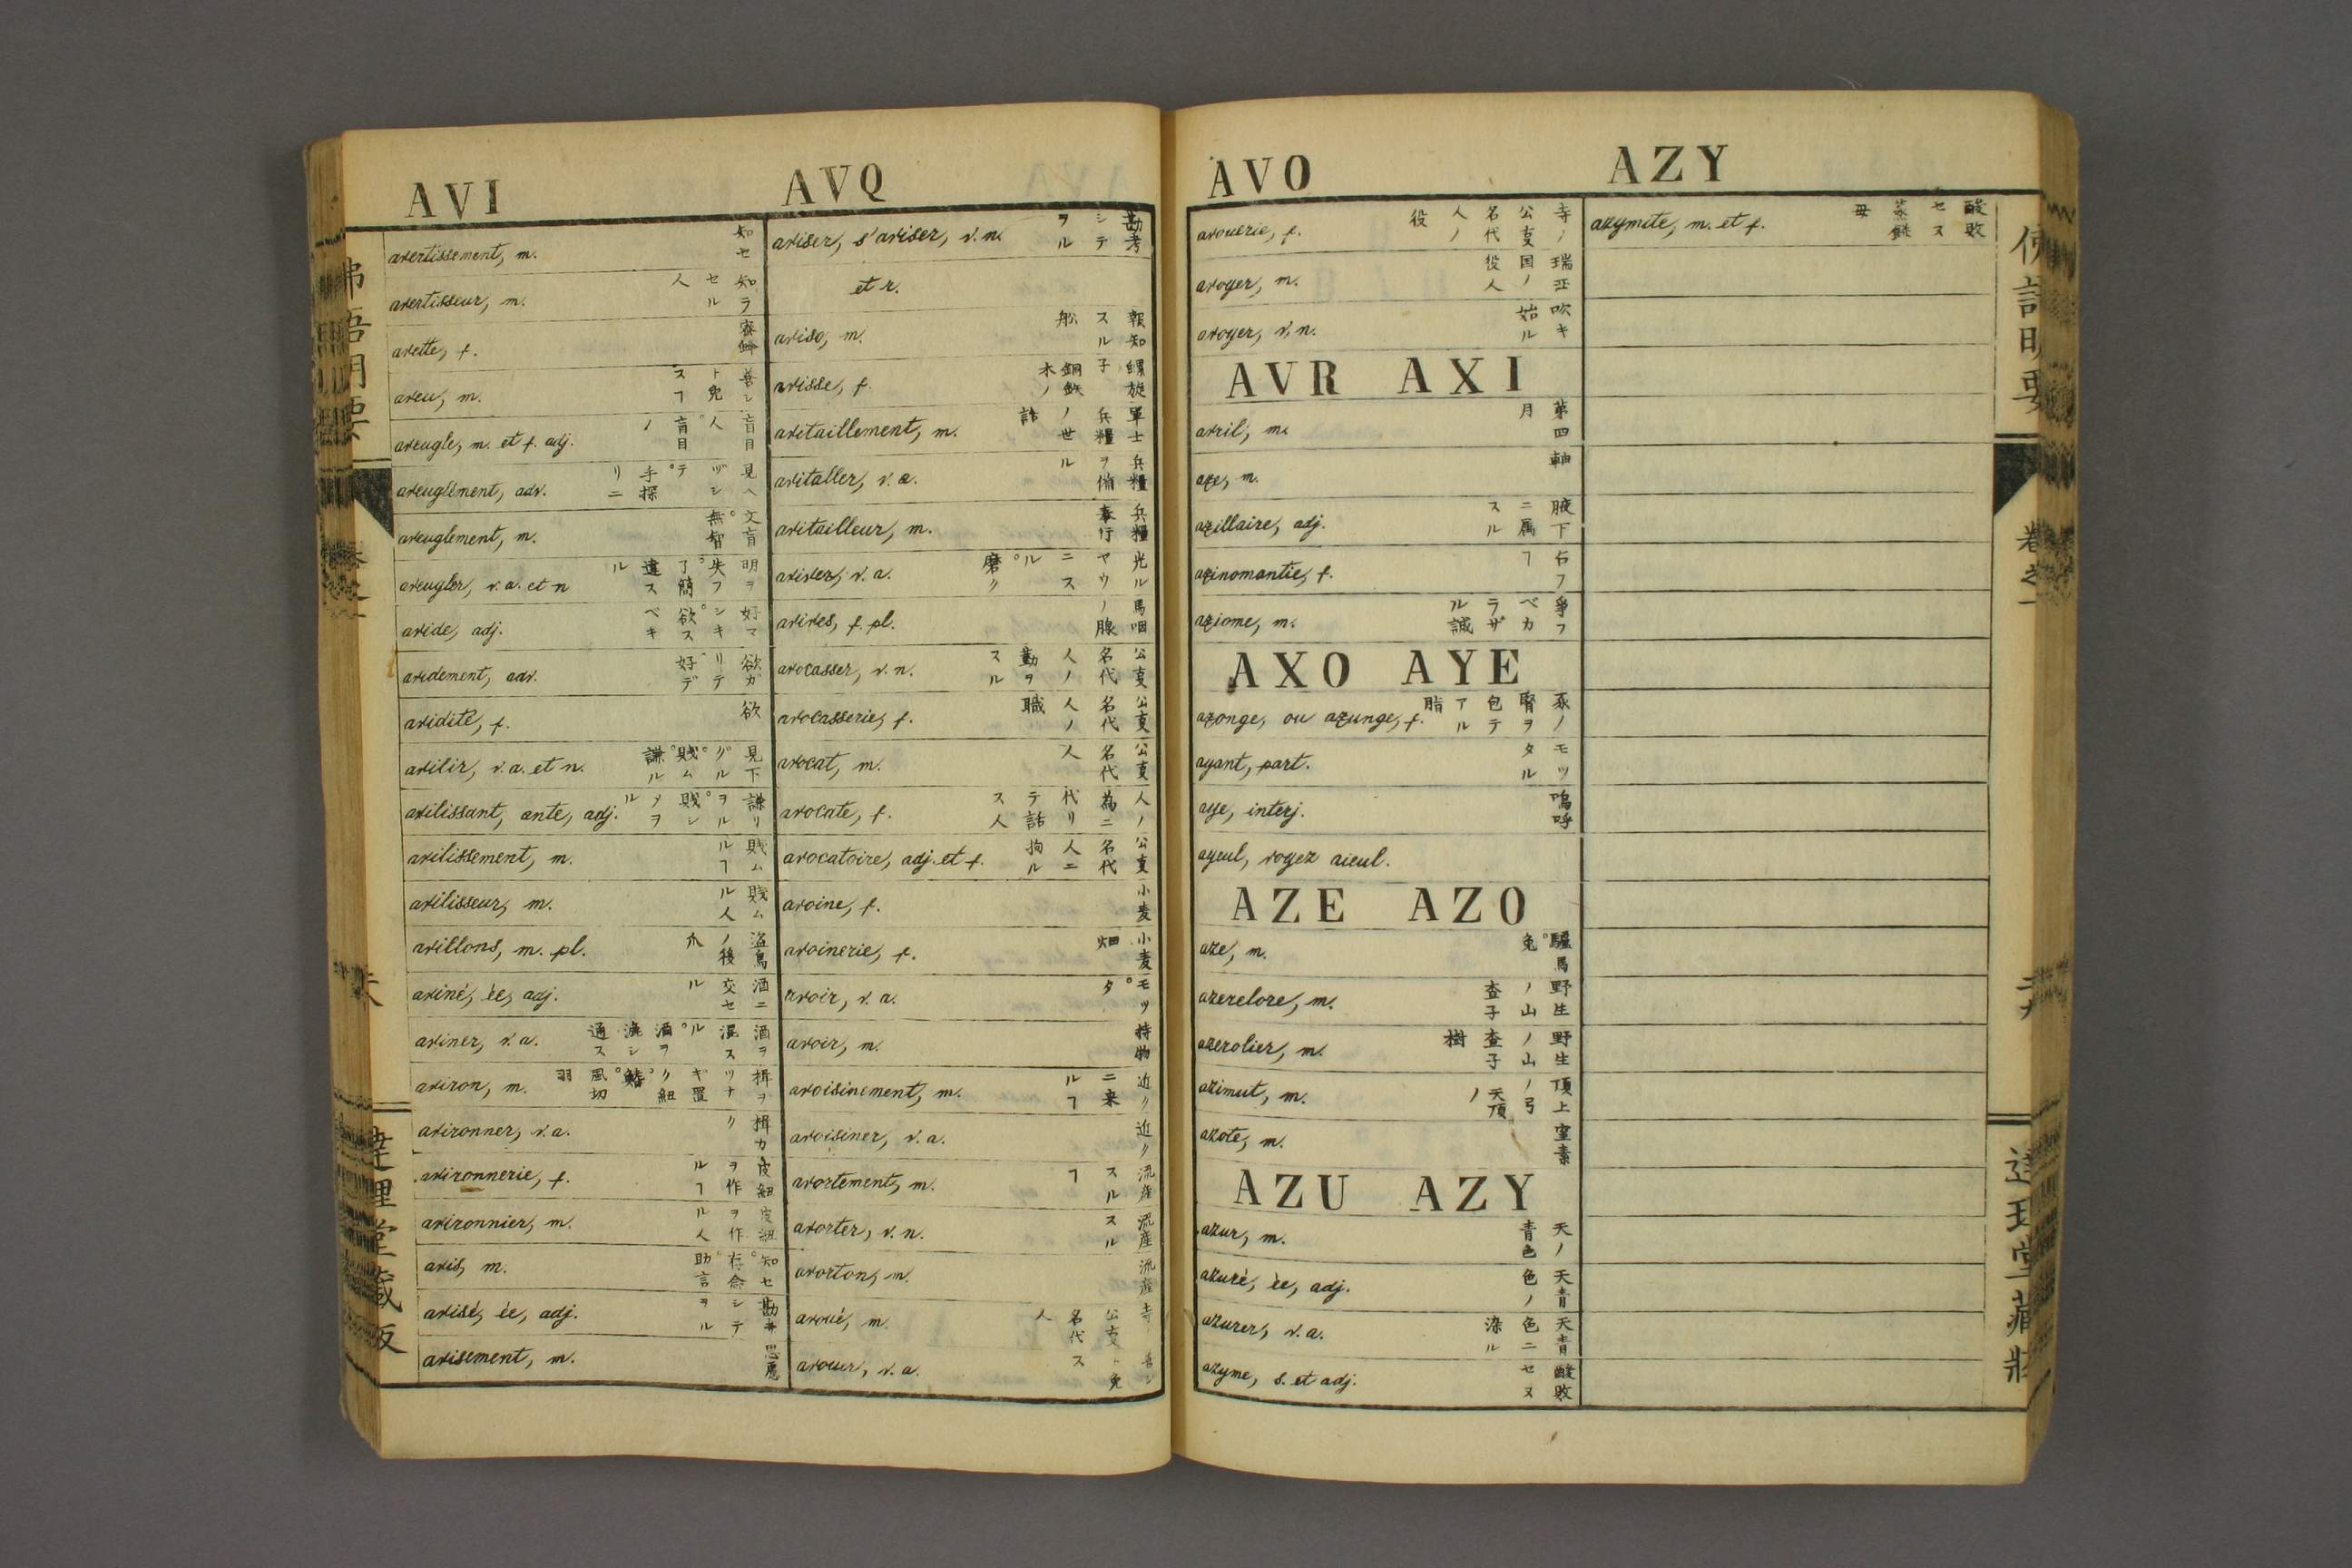 AVI AVQ
avertissement, m. 知セ
avertisseur, m. 知ラセル人
avette, f.
aveu, m. 善シト免スヿ
aveugle, m. et f. adj. 盲目人。盲目ノ
aveuglément, adv. 見ヘヅシテ。手探リニ
aveuglement, m. 文盲。無智
aveugler, v. a. et n 明ヲ失フ。了簡違スル
avide, adj. 好マシキ。欲スベキ
avidement, adv. 欲ガリテ。好デ
avidité, f. 欲
avilir, v. a. et n. 見下ゲル。賎ム。謙ル
avilissant, ante, adj. 謙リヲル。賎シメヲル
avilissement, m. 賎ムルヿ
avilisseur, m. 賎ムル人
avillons, m. pl. 盗鳥ノ後爪
aviné, ée, adj. 酒ニ交セル
aviner, v. a. 酒ヲ混スル。酒ヲ漉シ通ス
aviron, m. 楫ヲツナギ置ク紐。鰭。風切羽
avironner, v. a. 楫カク
avironnerie, f. 皮紐ヲ作ルヿ
avironnier, m. 皮紐ヲ作ル人
avis, m. 知セ。存念。助言
avisé, ée, adj. 勘考シテヲル
avisement, m. 思慮
aviser, s'aviser, v. n. 勘考シテヲル
et r.
aviso, m. 報知スル舩
avisse, f. 螺旋子 銅鉄木ノ
avitaillement, m. 軍士兵糧ノ世話
avitaller, v. a. 兵糧ヲ備ル
avitailleur, m. 兵糧奉行
aviver, v. a. 光ルヤウニスル。磨ク
avives, f. pl. 馬咽ノ腺
avocasser, v. n. 公叓名代人ノ勤ヲスル
avocasserie, f. 公叓名代人ノ職
avocat, m. 公叓名代人
avocate, f. 人ノ為ニ代リテ話ス人
avocatoire, adj. et f. 公叓名代人ニ拘ル
avoine, f. 小麦
avoinerie, f. 小麦畑
avoir, v. a. モツ。タ
avoir, m. 持物
avoisinement, m. 近クニ来ルヿ
avoisiner, v. a. 近ク
avortement, m. 流産スルヿ
avorter, v. n. 流産スル
avorton, m. 流産
avoué, m. 寺 公叓名代人
avouer, v. a. 善シト免ス
AVO AZY
avouerie, f. 寺ノ公叓名代人ノ役
avoyer, m. 瑞西国ノ役人
avoyer, v. n. 吹キ始ル
AVR AXI
avril, m. 第四月
axe, m. 軸
axillaire, adj. 腋下ニ属スル
axinomantie, f.
axiome, m. 爭フベカラザル誠
AXO AYE
axonge, ou axunge, f. 豕ノ腎ヲ包テアル脂
ayant, part. モツタル
aye, interj. 嗚呼
ayeul, voyez aieul.
AZE AZO
aze, m. 驢馬。兎
azerelore, m. 野生ノ山査子
azerolier, m. 野生ノ山査子樹
azimut, m. 頂上ノ弓 天頂ノ
azote, m. 窒素
AZU AZY
azur, m. 天ノ青色
azuré, ée, adj. 天青色ノ
azurer, v. a. 天青色ニ染ル
azyme, s. et adj. 酸敗セヌ
azymite, m. et f. 酸敗セス蒸餅